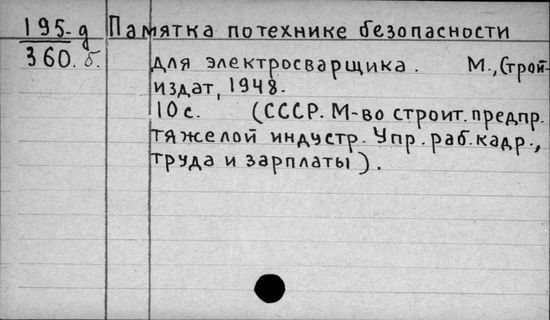 195-д Памятка по технике безопасности
360.б. для электросварщика. М., Строй-
издат, 1948.
10 с. (СССР. М-во строит. предпр.
тяжелой индустр. Упр. раб. кадр.,
труда и зарплаты).